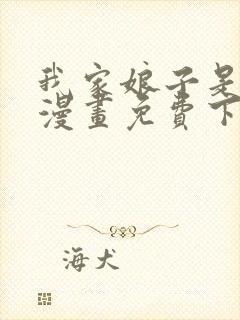 我家娘子是
漫畫免費下
海犬